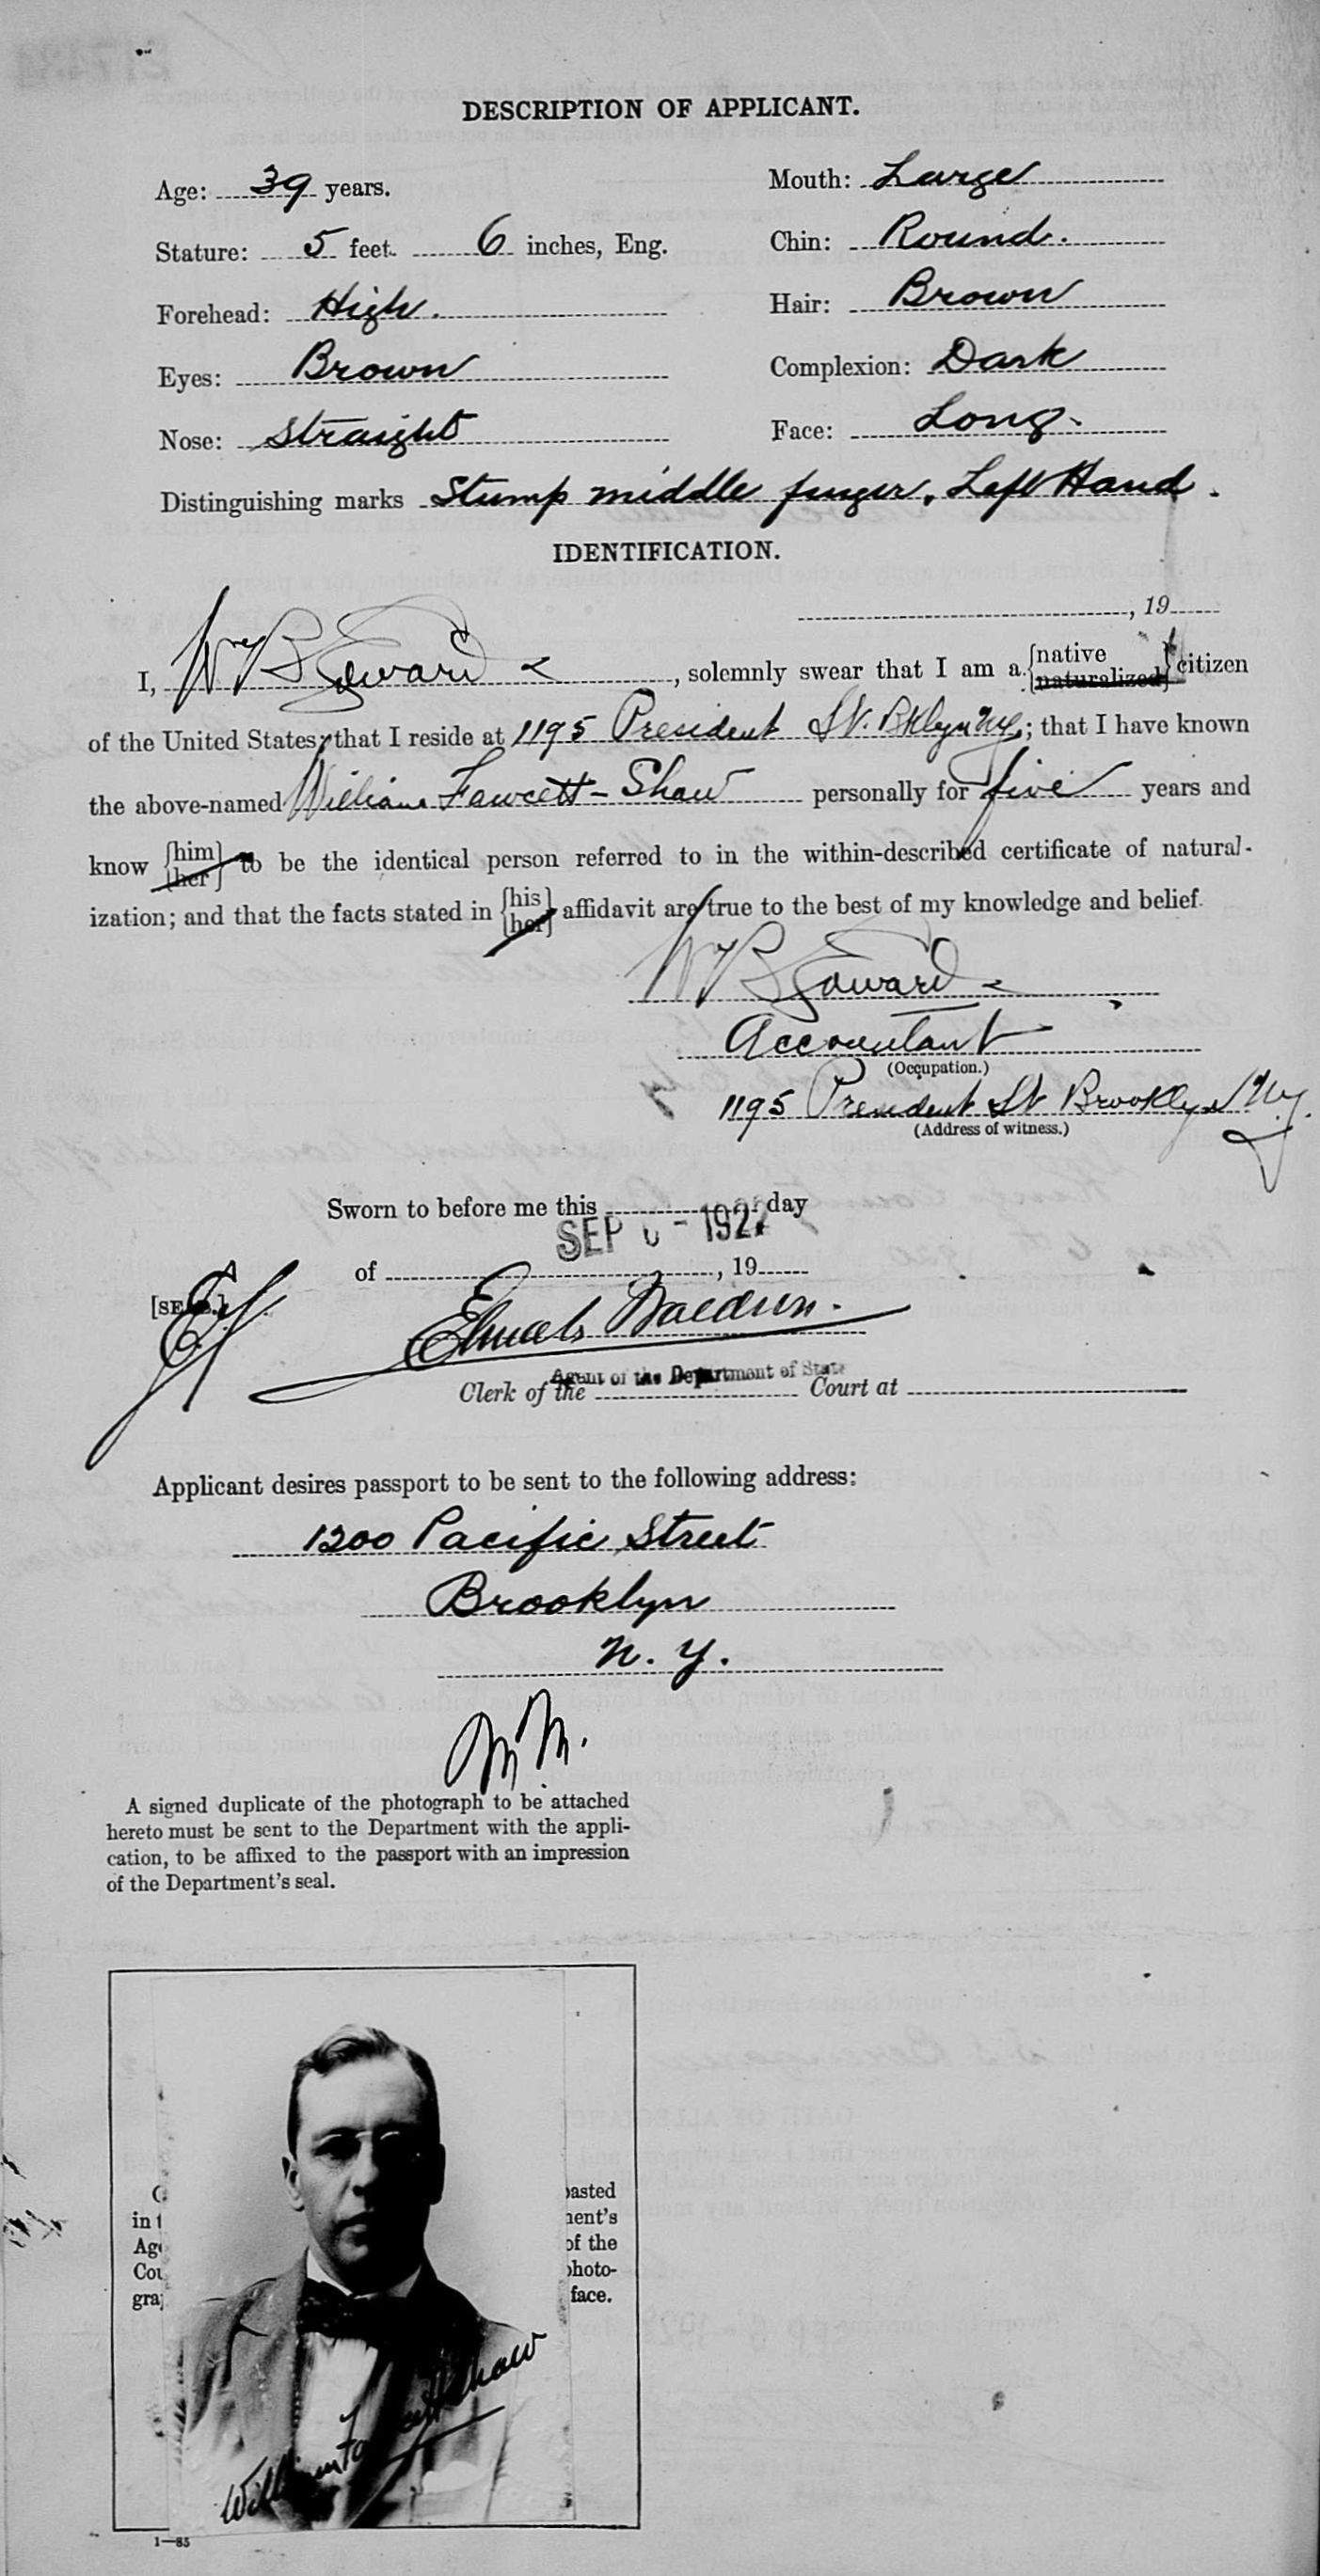 DESCRIPTION OF APPLICANT.
Age: 39 years.
Mouth: Large
Stature: 5 feet. 6 inches, Eng.
Chin: Round.
Forehead: High.
Hair: Brown
Eyes: Brown
Complexion: Dark
Nose: Straight
Face: Long.
Distinguishing marks Stump middle finger, Left Hand.
IDENTIFICATION.
, 19
I, Wm B , solemnly swear that I am a {native naturalized} citizen
of the United States; that I reside at 1195 President St. Bklyn NY; that I have known
the above-named William Fawcett-Shaw personally for five years and
know {him her} to be the identical person referred to in the within-described certificate of natural-
ization; and that the facts stated in {his her} affidavit are true to the best of my knowledge and belief.
Wm B
Accountant
(Occupation.)
1195 President St Brooklyn NY.
(Address of witness.)
Sworn to before me this day
SEP 192
of , 19
[SEAL.]
Baldwin.
Agent of the Department of State
Clerk of the Court at
Applicant desires passport to be sent to the following address:
1200 Pacific Street
Brooklyn
N. Y.
A signed duplicate of the photograph to be attached
hereto must be sent to the Department with the appli-
cation, to be affixed to the passport with an impression
of the Department's seal.
pasted
in t ment's
Age of the
Cou photo-
gra face.
William Fawcett Shaw
1—85